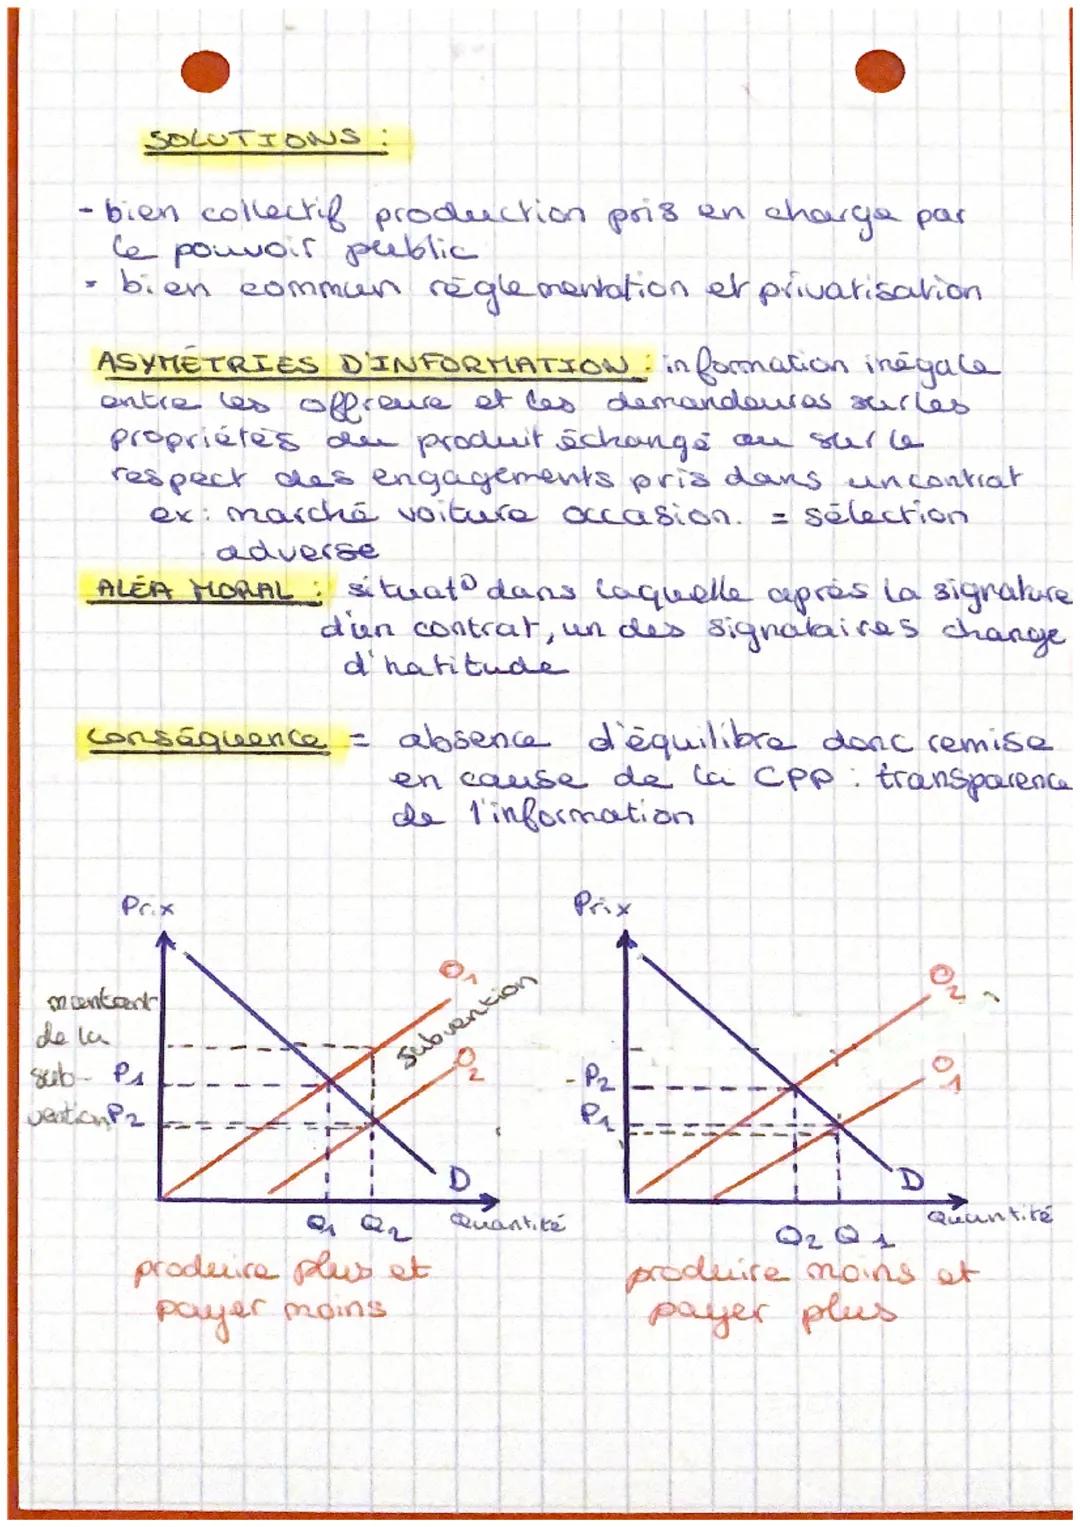 SOLUTIONS :
- bien collectif production pris en charge par
le pouvoir public
- bien commun réglementation et privatisation
ASYMÉTRIES D'INFORMATION : information inégale
entre les offreurs et les demandeuras sur les
propriétés du produit échangé ou sur le
respect des engagements pris dans un contrat
ex : marché voiture occasion. = sélection
adverse
ALÉA MORAL : situat° dans laquelle après la signature
d'un contrat, un des signataires change
d'hatitude
Conséquence = absence d'équilibre donc remise
en cause de la CPP : transparence
de l'information
Prix
montant
de la
sub-
vention
P1
P2
O1
subvention
O2
D
Q1 Q2
Quantité
produire plus et
payer moins
Prix
- P2
P1
O2
O1
D
Q2 Q1
Quantité
produire moins et
payer plus